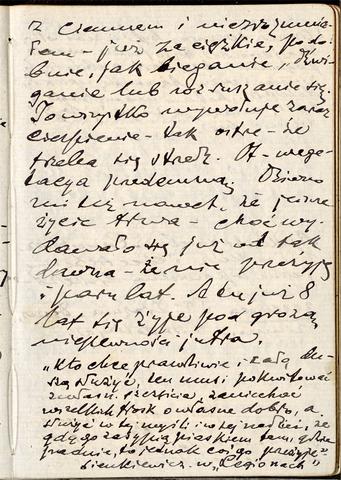 z ciemnem i niezrozumia-
łem - już za ciężkie, podo-
bnie, jak bieganie, dźwi-
ganie lub rozruszanie się.
To wszystko wywołuje zaraz
cierpienie - tak ostre - że
trzeba się strzedz. Ot - wege-
tacya przedemną. Dziwno
mi też nawet, że jeszcze
życie trwa - choć wy-
dawało się już od tak
dawna - że nie przeżyję
i paru lat. A tu już 8
lat się żyje pod grozą
niepewności jutra.
„Kto chce prawdziwie i całą du-
szą służyć, ten musi pokwitować
z własn. szczęścia, zaniechać
wszelkich trosk o własne dobro, a
służyć w tej myśli i w tej nadziei, że
gdy go zasypią piaskiem tam, gdzie
padnie, to jednak coś go przeżyje"
Sienkiewicz w „Legionach"